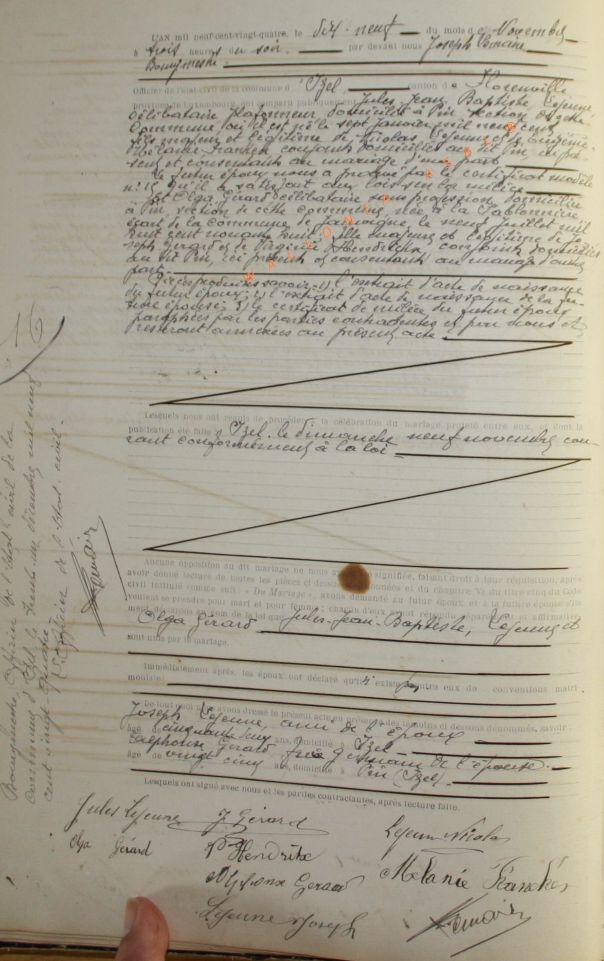 L'AN mil neuf-cent-vingt-quatre, le dix-neuf du mois de Novembre
à trois heures du soir, par devant nous Joseph Lemaire
Bourgmestre
Officier de l'état-civil de la commune d'Izel, canton de Florenville
province de Luxembourg, ont comparu publiquement Jules Jean Baptiste Lejeune
célibataire plafonneur domicilié à Pin section de cette
Commune où il est né le sept janvier mil neuf cent
fils majeur et légitime de Nicolas Lejeune et de
conjoints domiciliés au dit Pin, ici
et consentants au mariage d'une part
Le futur époux nous a prouvé par le certificat modèle
n° 15 qu'il a satisfait aux lois sur la milice
Et Olga Gérard célibataire sans profession domiciliée
à Pin, section de cette commune, née à
de la commune de Jamoigne le neuf juillet mil
huit cent nonante huit, fille majeure et légitime de Jo
seph Gérard et de Virginie Hendrikx conjoints domiciliés
au dit Pin, ici présents et consentants au mariage d'autre
part.
Pièces produites savoir: 1) l'extrait d'acte de naissance
du futur époux; 2) l'extrait d'acte de naissance de la fu
ture épouse; 3) le certificat de milice du futur époux
paraphées par les parties contractantes et par nous et
resteront annexées au présent acte
WALLONIA
Lesquels nous ont requis de procéder à la célébration du mariage projeté entre eux, et dont la
publication été faite à Izel, le dimanche neuf novembre cou-
rant conformément à la loi
Aucune opposition au dit mariage ne nous ayant été signifiée, faisant droit à leur réquisition, après
avoir donné lecture de toutes les pièces et dessus mentionnées et du chapitre VI du titre cinq du Code
civil intitulé « Du Mariage », avons demandé au futur époux et à la future épouse s'ils
veulent se prendre pour mari et pour femme; chacun d'eux ayant répondu séparément et affirmative
ment, déclarons au nom de la loi que Jules-Jean-Baptiste, Lejeune et
Olga Gérard
sont unis par le mariage.
Immédiatement après, les époux ont déclaré qu'il n'existe pas entre eux de conventions matri
moniales
De tout quoi nous avons dressé le présent acte en présence des témoins ci dessous dénommés, savoir:
Joseph Lejeune, ami de l'époux
âgé de cinquante deux ans, domicilié à Izel
Alphonse Gérard frère germain de l'épouse
âgé de vingt cinq ans, domicilié à Pin (Izel)
Lesquels ont signé avec nous et les parties contractantes, après lecture faite.
Jules Lejeune J Gérard Lejeune Nicolas
Olga Gérard V Hendrikx
Alphonse Gérard Mélanie
Lejeune Joseph Lemaire
Bourgmestre, Officier de l'état civil de la
commune d'Izel, le trente un décembre mil neuf
cent vingt quatre
L'Officier de l'état civil
Lemaire